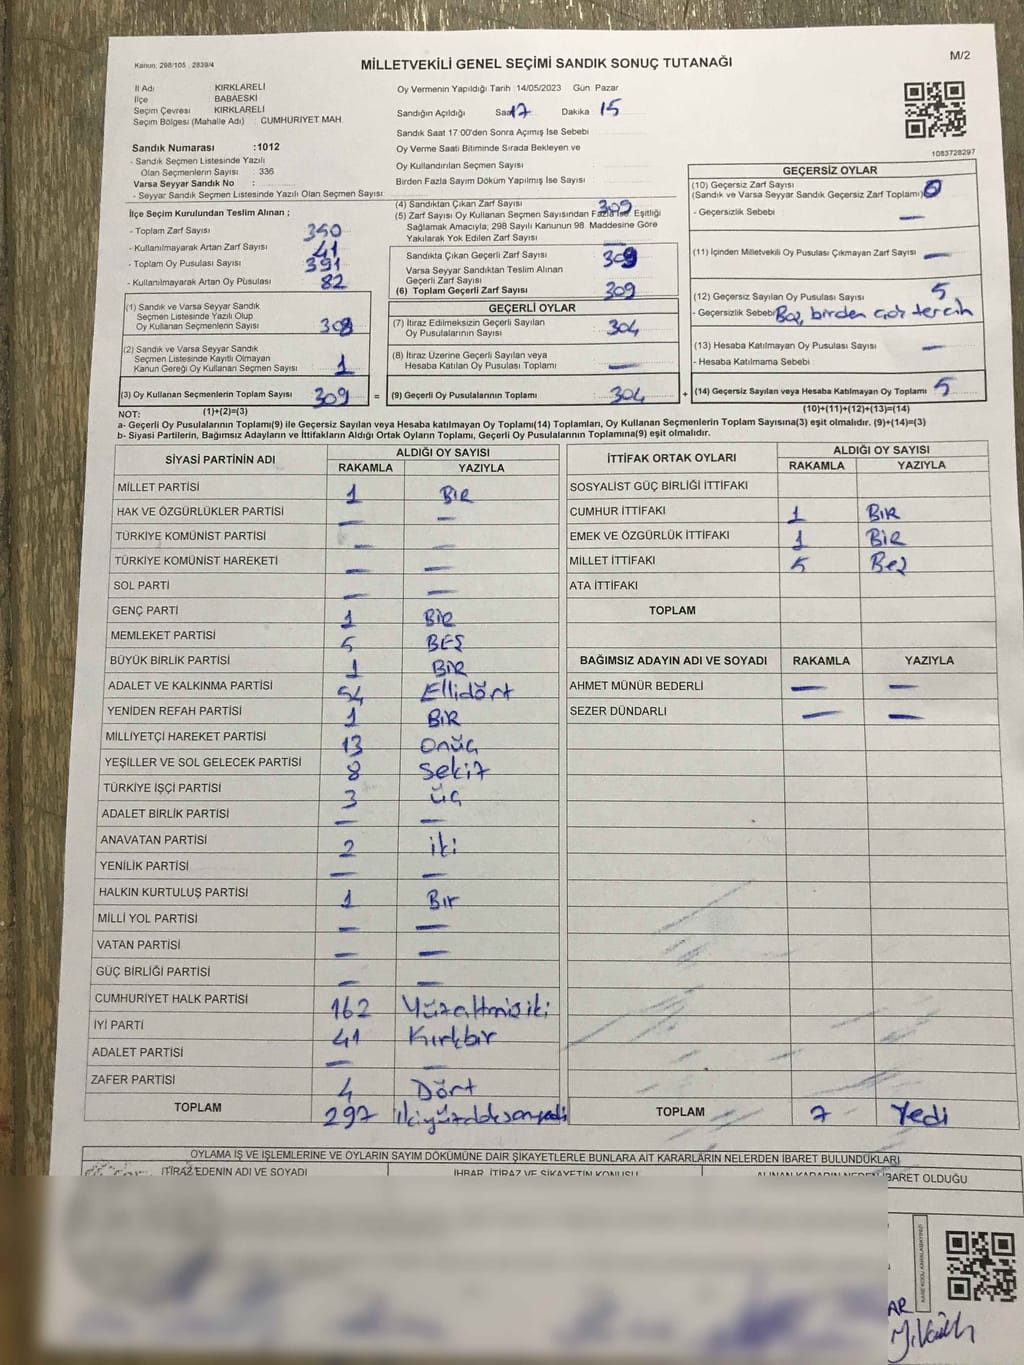 Kanun: 298/105 , 2839/4
MİLLETVEKİLİ GENEL SEÇİMİ SANDIK SONUÇ TUTANAĞI
M/2
İl Adı KIRKLARELİ
İlçe BABAESKİ
Seçim Çevresi KIRKLARELİ
Seçim Bölgesi (Mahalle Adı) : CUMHURİYET MAH.
Sandık Numarası :1012
- Sandık Seçmen Listesinde Yazılı
Olan Seçmenlerin Sayısı : 336
Varsa Seyyar Sandık No :
- Seyyar Sandık Seçmen Listesinde Yazılı Olan Seçmen Sayısı:
Oy Vermenin Yapıldığı Tarih :14/05/2023 Gün Pazar
Sandığın Açıldığı Saat 17 Dakika 15
Sandık Saat 17:00'den Sonra Açımış İse Sebebi
Oy Verme Saati Bitiminde Sırada Bekleyen ve
Oy Kullandırılan Seçmen Sayısı
Birden Fazla Sayım Döküm Yapılmış İse Sayısı
1083728297
İlçe Seçim Kurulundan Teslim Alınan ;
- Toplam Zarf Sayısı 350
- Kullanılmayarak Artan Zarf Sayısı 41
- Toplam Oy Pusulası Sayısı 391
- Kullanılmayarak Artan Oy Pusulası 82
(1) Sandık ve Varsa Seyyar Sandık
Seçmen Listesinde Yazılı Olup
Oy Kullanan Seçmenlerin Sayısı 308
(2) Sandık ve Varsa Seyyar Sandık
Seçmen Listesinde Kayıtlı Olmayan
Kanun Gereği Oy Kullanan Seçmen Sayısı 1
(3) Oy Kullanan Seçmenlerin Toplam Sayısı 309 =
(4) Sandıktan Çıkan Zarf Sayısı 309
(5) Zarf Sayısı Oy Kullanan Seçmen Sayısından Fazla İse, Eşitliği
Sağlamak Amacıyla; 298 Sayılı Kanunun 98. Maddesine Göre
Yakılarak Yok Edilen Zarf Sayısı
Sandıkta Çıkan Geçerli Zarf Sayısı 309
Varsa Seyyar Sandıktan Teslim Alınan
Geçerli Zarf Sayısı
(6) Toplam Geçerli Zarf Sayısı 309
GEÇERLİ OYLAR
(7) İtiraz Edilmeksizin Geçerli Sayılan
Oy Pusulalarının Sayısı 304
(8) İtiraz Üzerine Geçerli Sayılan veya
Hesaba Katılan Oy Pusulası Toplamı —
(9) Geçerli Oy Pusulalarının Toplamı 304 +
GEÇERSİZ OYLAR
(10) Geçersiz Zarf Sayısı
(Sandık ve Varsa Seyyar Sandık Geçersiz Zarf Toplamı) 0
- Geçersizlik Sebebi —
(11) İçinden Milletvekili Oy Pusulası Çıkmayan Zarf Sayısı —
(12) Geçersiz Sayılan Oy Pusulası Sayısı 5
- Geçersizlik Sebebi Boş, birden çok tercih
(13) Hesaba Katılmayan Oy Pusulası Sayısı —
- Hesaba Katılmama Sebebi
(14) Geçersiz Sayılan veya Hesaba Katılmayan Oy Toplamı 5
NOT: (1)+(2)=(3) (10)+(11)+(12)+(13)=(14)
a- Geçerli Oy Pusulalarının Toplamı(9) ile Geçersiz Sayılan veya Hesaba katılmayan Oy Toplamı(14) Toplamları, Oy Kullanan Seçmenlerin Toplam Sayısına(3) eşit olmalıdır. (9)+(14)=(3)
b- Siyasi Partilerin, Bağımsız Adayların ve İttifakların Aldığı Ortak Oyların Toplamı, Geçerli Oy Pusulalarının Toplamına(9) eşit olmalıdır.
SİYASİ PARTİNİN ADI ALDIĞI OY SAYISI
RAKAMLA YAZIYLA
MİLLET PARTİSİ 1 BİR
HAK VE ÖZGÜRLÜKLER PARTİSİ — —
TÜRKİYE KOMÜNİST PARTİSİ — —
TÜRKİYE KOMÜNİST HAREKETİ — —
SOL PARTİ — —
GENÇ PARTİ 1 BİR
MEMLEKET PARTİSİ 5 BEŞ
BÜYÜK BİRLİK PARTİSİ 1 BİR
ADALET VE KALKINMA PARTİSİ 54 Ellidört
YENİDEN REFAH PARTİSİ 1 BİR
MİLLİYETÇİ HAREKET PARTİSİ 13 Onüç
YEŞİLLER VE SOL GELECEK PARTİSİ 8 Sekiz
TÜRKİYE İŞÇİ PARTİSİ 3 üç
ADALET BİRLİK PARTİSİ — —
ANAVATAN PARTİSİ 2 iki
YENİLİK PARTİSİ — —
HALKIN KURTULUŞ PARTİSİ 1 Bir
MİLLİ YOL PARTİSİ — —
VATAN PARTİSİ — —
GÜÇ BİRLİĞİ PARTİSİ — —
CUMHURİYET HALK PARTİSİ 162 Yüzaltmışiki
İYİ PARTİ 41 Kırkbir
ADALET PARTİSİ — —
ZAFER PARTİSİ 4 Dört
TOPLAM 297 ikiyüzdoksanyedi
İTTİFAK ORTAK OYLARI ALDIĞI OY SAYISI
RAKAMLA YAZIYLA
SOSYALİST GÜÇ BİRLİĞİ İTTİFAKI
CUMHUR İTTİFAKI 1 BİR
EMEK VE ÖZGÜRLÜK İTTİFAKI 1 BİR
MİLLET İTTİFAKI 5 Beş
ATA İTTİFAKI
TOPLAM
BAĞIMSIZ ADAYIN ADI VE SOYADI RAKAMLA YAZIYLA
AHMET MÜNÜR BEDERLİ — —
SEZER DÜNDARLI — —
TOPLAM 7 Yedi
OYLAMA İŞ VE İŞLEMLERINE VE OYLARIN SAYIM DÖKÜMÜNE DAİR ŞİKAYETLERLE BUNLARA AİT KARARLARIN NELERDEN İBARET BULUNDUKLARI
İTİRAZ EDENİN ADI VE SOYADI İHBAR, İTİRAZ VE ŞİKAYETİN KONUSU ALINAN KARARIN NEDEN İBARET OLDUĞU
AR